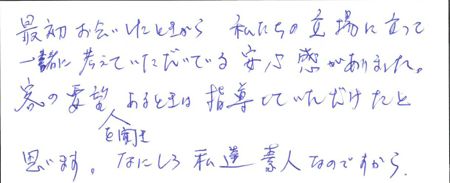 最初お会いしたときから 私たちの立場に立って
一緒に考えていただいている安心感がありました。
客の要望を聞き あるときは指導していただけたと
思います。なにしろ私達素人なのですから.